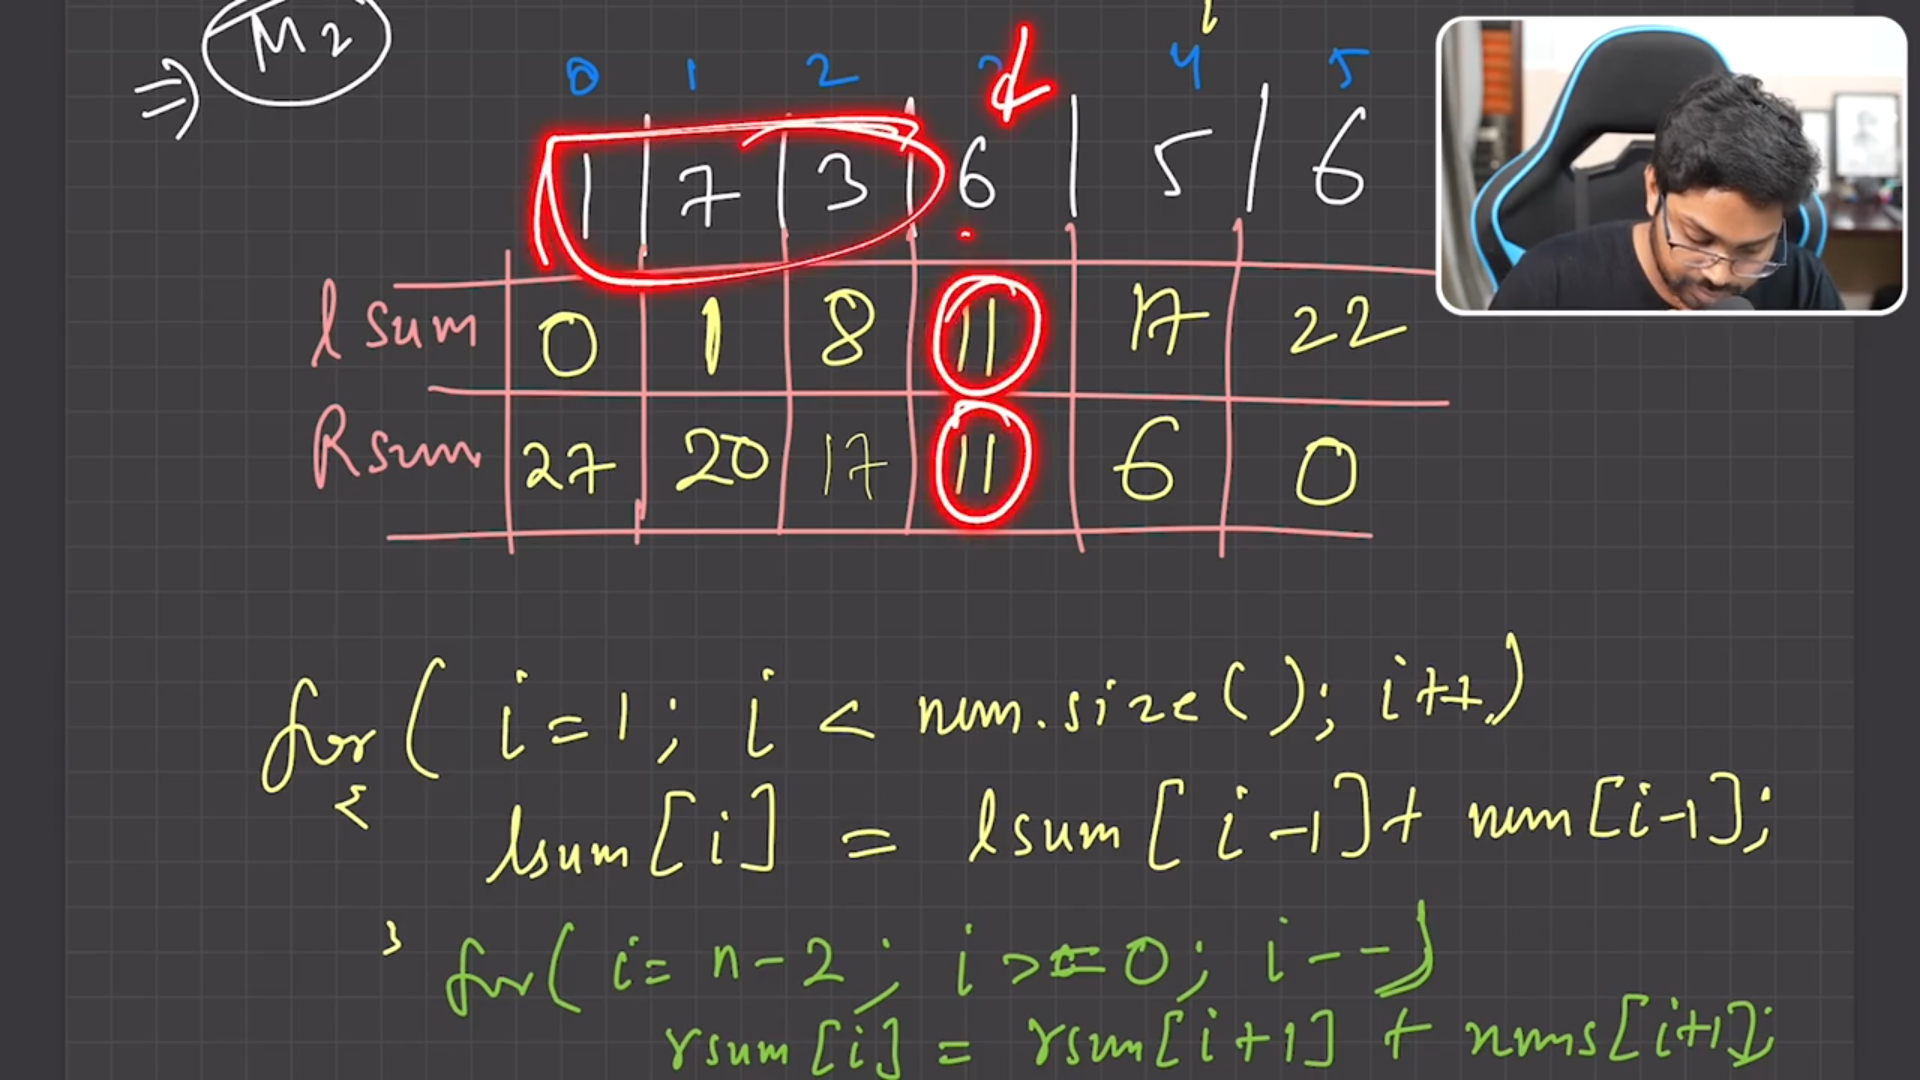 ⇒ M2
0 1 2 4 5
1 | 7 | 3 | 6 | 5 | 6
lsum 0 1 8 11 17 22
Rsum 27 20 17 11 6 0
for( i=1; i < num.size(); i++)
{
lsum[i] = lsum[i-1]+ num[i-1];
}
for( i= n-2; i >= 0; i--)
rsum[i] = rsum[i+1] + nums[i+1];